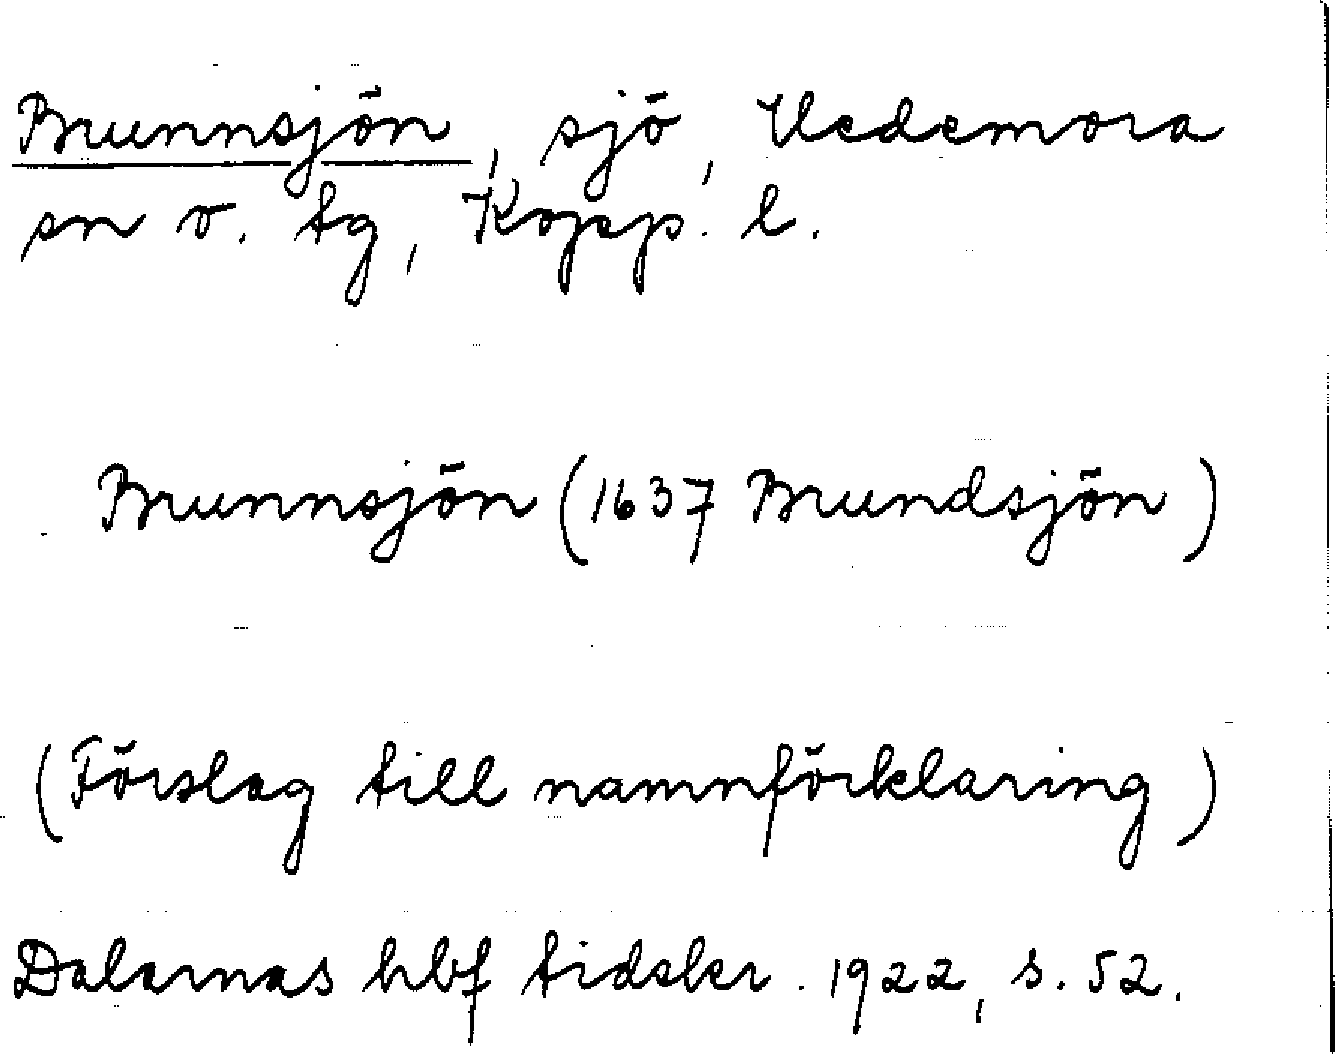 Brunnsjön, sjö, Hedemora
sn o. tg, Kopp. l.
Brunnsjön (1637 Brundsjön)
(Förslag till namnförklaring)
Dalarnas hbf tidskr. 1922, s. 52.